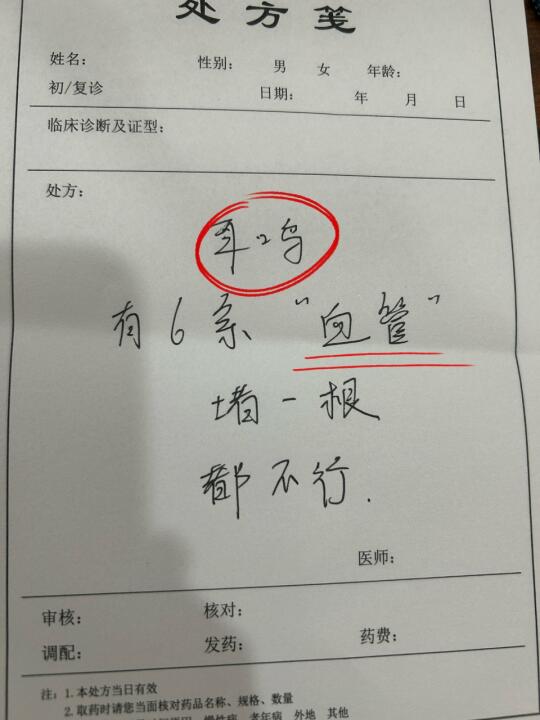 处方笺
姓名： 性别： 男 女 年龄：
初/复诊 日期： 年 月 日
临床诊断及证型：
处方：
耳鸣
有6条“血管”
堵一根
都不行.
医师：
审核： 核对：
调配： 发药： 药费：
注：1.本处方当日有效
2.取药时请您当面核对药品名称、规格、数量
慢性病 老年病 外地 其他